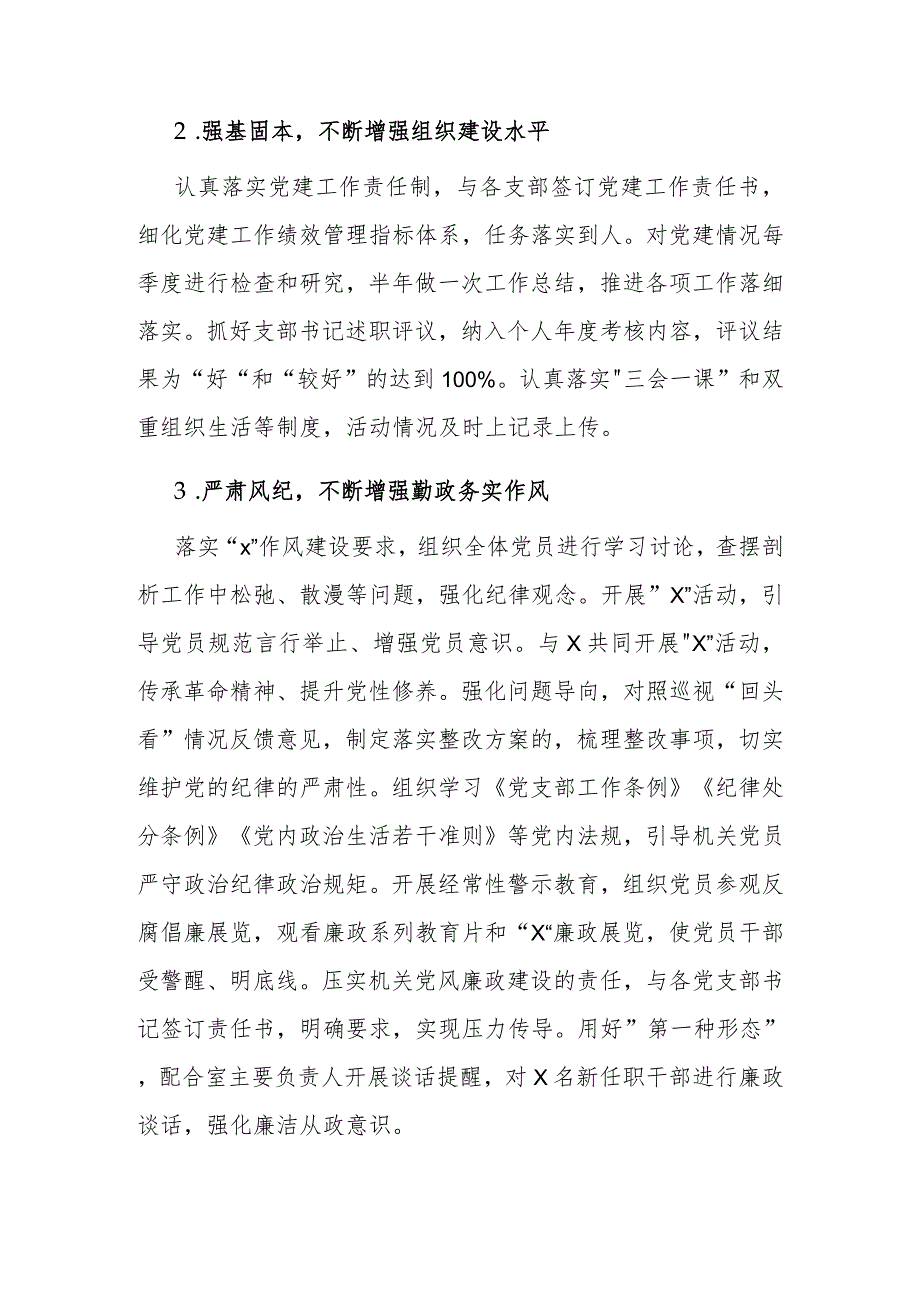 2 .强基固本，不断增强组织建设水平
认真落实党建工作责任制，与各支部签订党建工作责任书，
细化党建工作绩效管理指标体系，任务落实到人。对党建情况每
季度进行检查和研究，半年做一次工作总结，推进各项工作落细
落实。抓好支部书记述职评议，纳入个人年度考核内容，评议结
果为“好“和“较好”的达到 100%。认真落实"三会一课”和双
重组织生活等制度，活动情况及时上记录上传。
3 .严肃风纪，不断增强勤政务实作风
落实“x”作风建设要求，组织全体党员进行学习讨论，查摆剖
析工作中松弛、散漫等问题，强化纪律观念。开展”X”活动，引
导党员规范言行举止、增强党员意识。与 X 共同开展"X”活动，
传承革命精神、提升党性修养。强化问题导向，对照巡视“回头
看”情况反馈意见，制定落实整改方案的，梳理整改事项，切实
维护党的纪律的严肃性。组织学习《党支部工作条例》《纪律处
分条例》《党内政治生活若干准则》等党内法规，引导机关党员
严守政治纪律政治规矩。开展经常性警示教育，组织党员参观反
腐倡廉展览，观看廉政系列教育片和“X“廉政展览，使党员干部
受警醒、明底线。压实机关党风廉政建设的责任，与各党支部书
记签订责任书，明确要求，实现压力传导。用好”第一种形态”
，配合室主要负责人开展谈话提醒，对 X 名新任职干部进行廉政
谈话，强化廉洁从政意识。